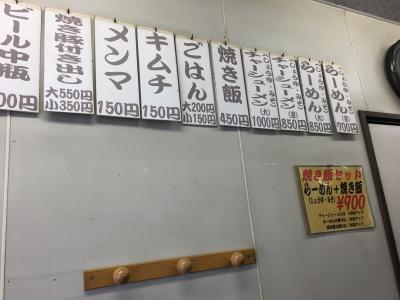 らーめん
(しょうゆ・みそ)
(並) 700円
らーめん
(しょうゆ・みそ)
(大) 850円
チャーシューメン
850円
チャーシューメン
(大)
1000円
焼き飯
450円
ごはん
大200円
小150円
キムチ
150円
メンマ
150円
焼き豚付き出し
大550円
小350円
ビール中瓶
00円
焼き飯セット
らーめん+焼き飯
(しょうゆ・みそ)
¥900